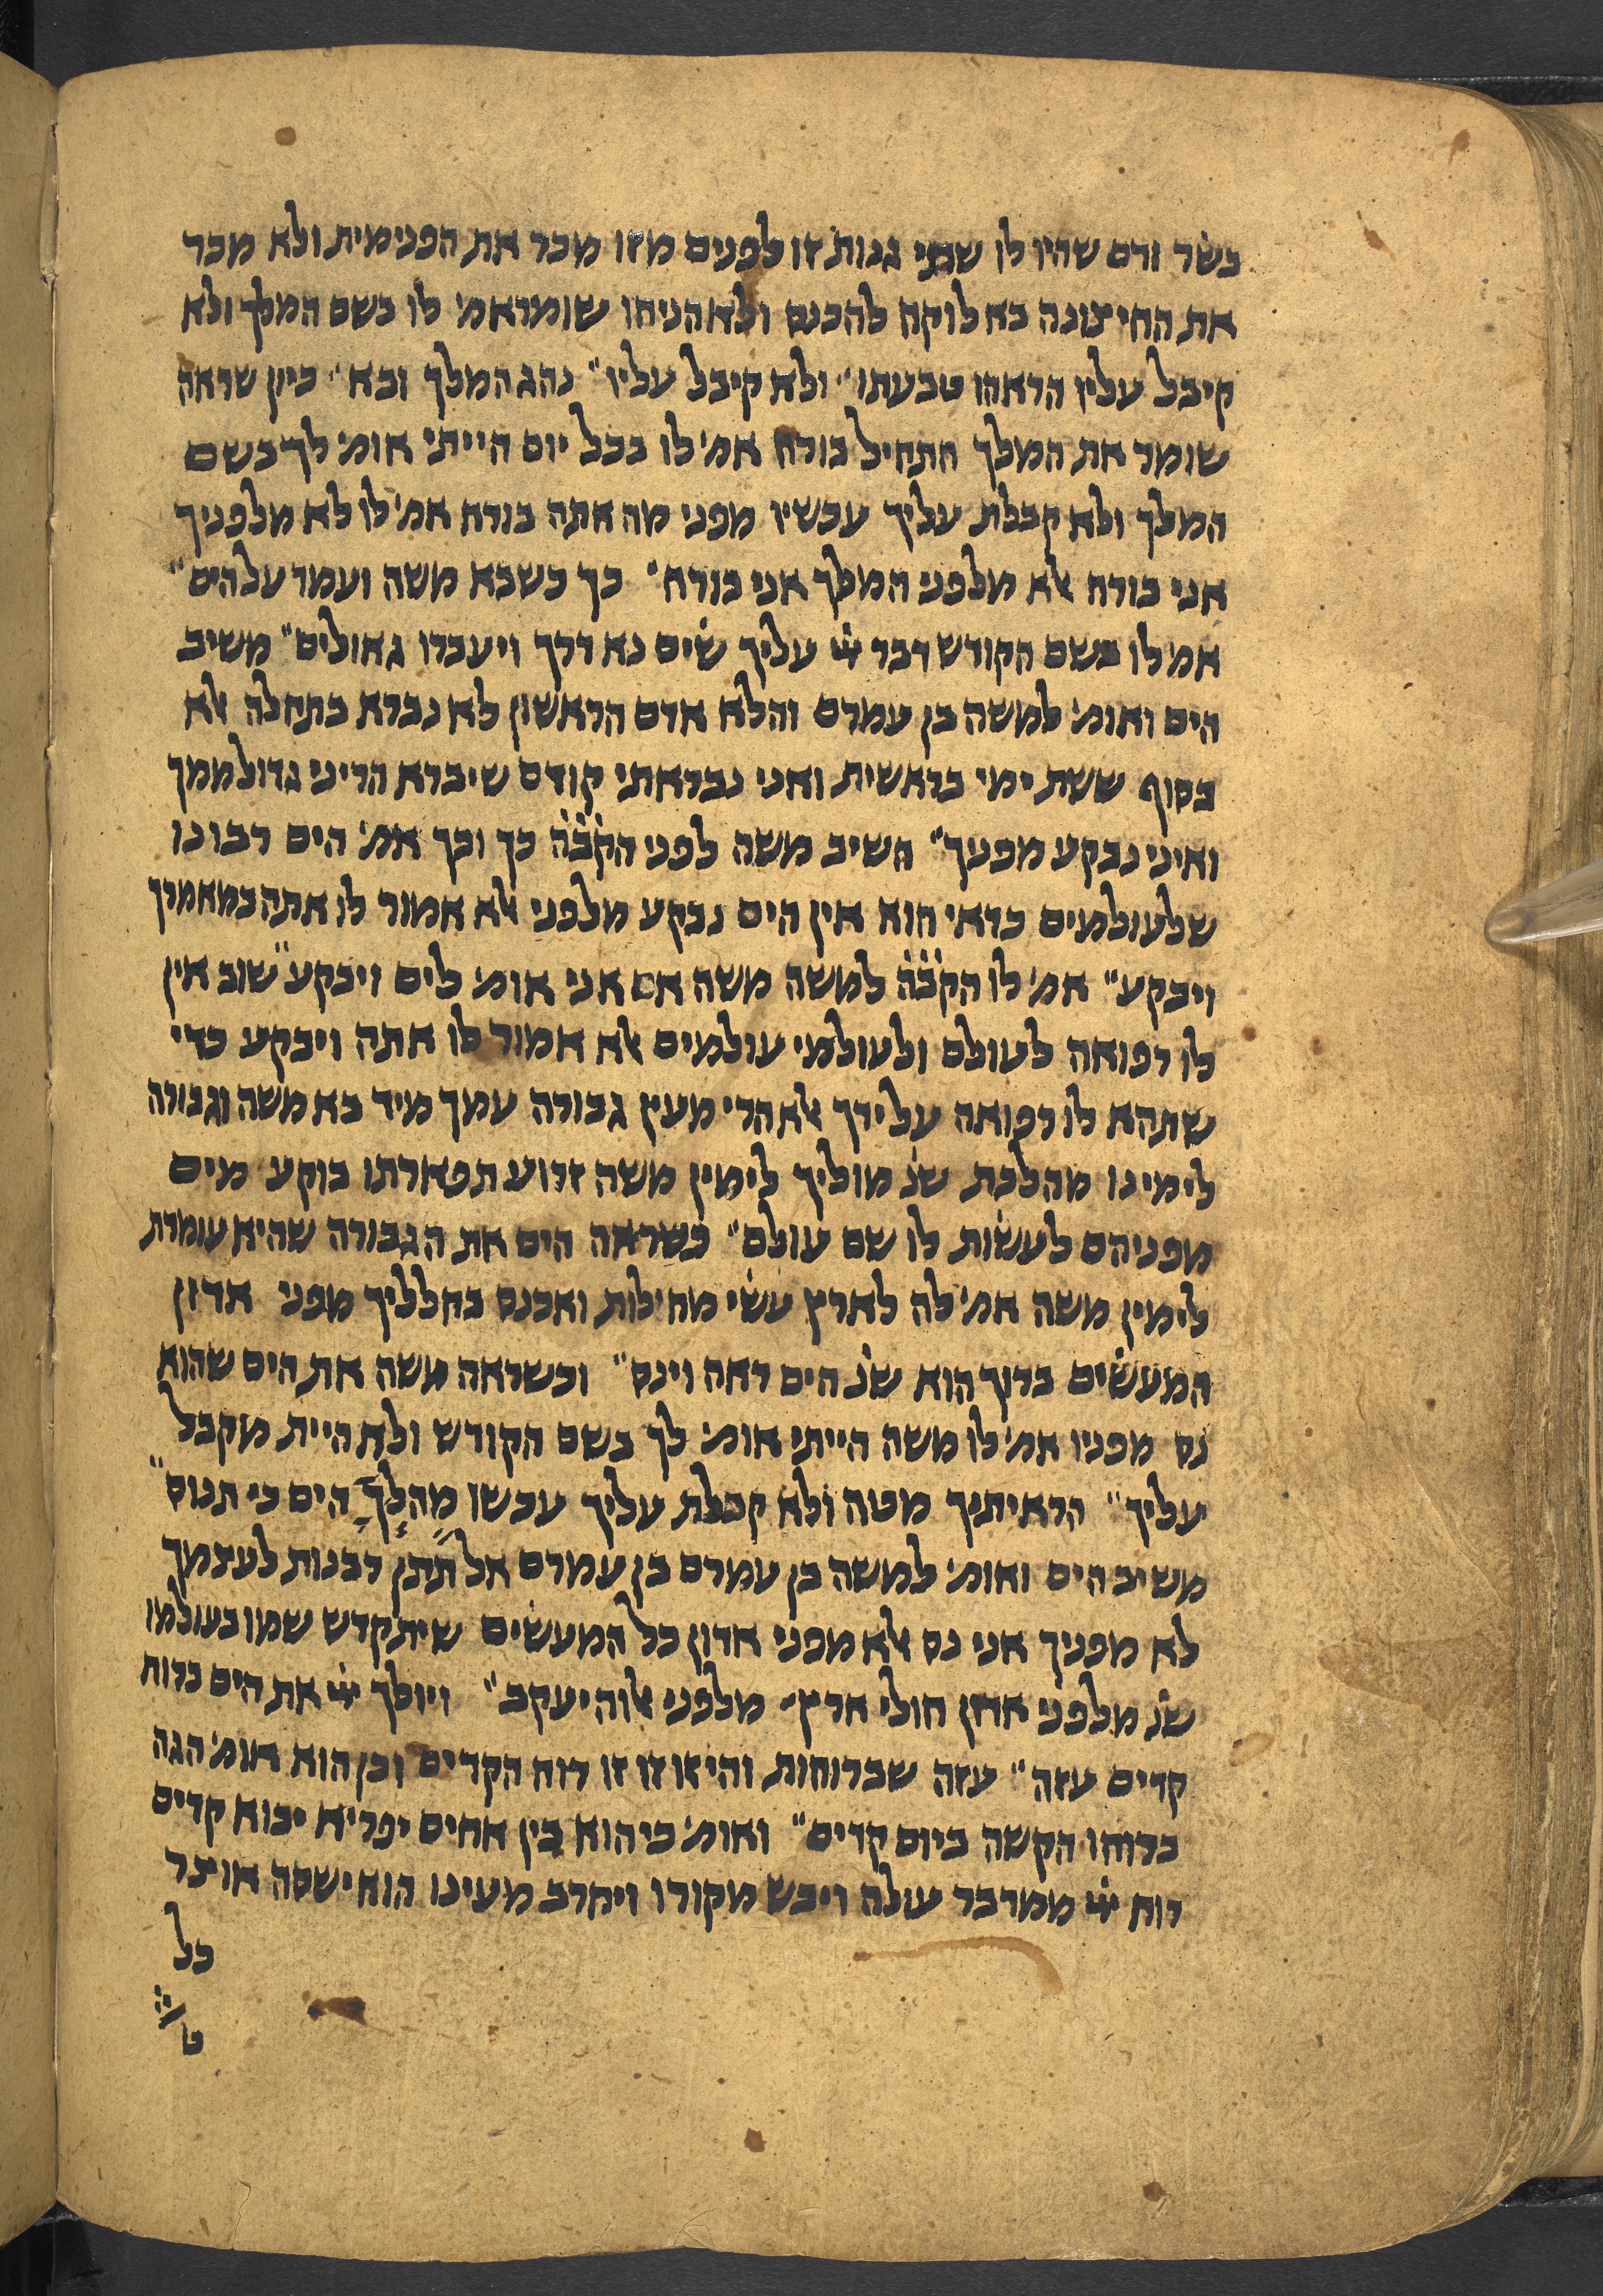 בשר ודם שהיו לו שתי גנות זו לפנים מזו מכר את הפנימית ולא מכר
את החיצונה בא לוקח להכנס ולא הניחו שומר אמ׳ לו בשם המלך ולא
קיבל עליו הראהו טבעתו״ ולא קיבל עליו״ נהג המלך ובא״ כיון שראה
שומר את המלך התחיל בורח אמ׳ לו בכל יום הייתי אומ׳ לך בשם
המלך ולא קבלת עליך עכשיו מפני מה אתה בורח אמ׳ לו לא מלפניך
אני בורח אלא מלפני המלך אני בורח׳ כך כשבא משה ועמד על הים״
אמ׳ לו בשם הקודש דבר ייי עליך שים נא דרך ויעברו גאולים״ משיב
הים ואומ׳ למשה בן עמרם והלא אדם הראשון לא נברא בתחלה אלא
בסוף ששת ימי בראשית ואני נבראתי קודם שיברא הריני גדול ממך
ואיני נבקע מפניך״ השיב משה לפני הקב׳ה׳ כך וכך אמ׳ הים רבונו
שלעולמים כדאי הוא אין הים נבקע מלפני אלא אמור לו אתה במאמרך
ויבקע״ אמ׳ לו הקב׳ה׳ למשה משה אם אני אומ׳ לים ויבקע״ שוב אין
לו רפואה לעולם ולעולמי עולמים אלא אמור לו אתה ויבקע כדי
שתהא לו רפואה על ידך אלא הרי מעין גבורה עמך מיד בא משה וגבורה
לימינו מהלכת שנ׳ מוליך לימין משה זרוע תפארתו בוקע מים
מפניהם לעשות לו שם עולם״ כשראה הים את הגבורה שהיא עומדת
לימין משה אמ׳ לה לארץ עשי מחילות ואכנס בחלליך מפני אדון
המעשים ברוך הוא שנ׳ הים ראה וינס״ וכשראה משה את הים שהוא
נס מפניו אמ׳ לו משה הייתי אומ׳ לך בשם הקודש ולא היית מקבל
עליך״ הראיתיך מטה ולא קבלת עליך עכשו מה לך הים כי תנוס״
משיב הים ואומ׳ למשה בן עמרם בן עמרם אל תתן רבנות לעצמך
לא מפניך אני נס אלא מפני אדון כל המעשים שיתקדש שמו בעולמו
שנ׳ מלפני אדון חולי ארץ׳ מלפני אלוה יעקב״ ויולך ייי את הים ברוח
קדים עזה״ עזה שברוחות והי זו זו זו רוח הקדים וכן הוא אומ׳ הגה
ברוחו הקשה ביום קדים״ ואומ׳ כי הוא בין אחים יפריא יבוא קדים
רוח ייי ממדבר עולה ויבש מקורו ויחרב מעינו הוא ישסה אוצר
כל
ט